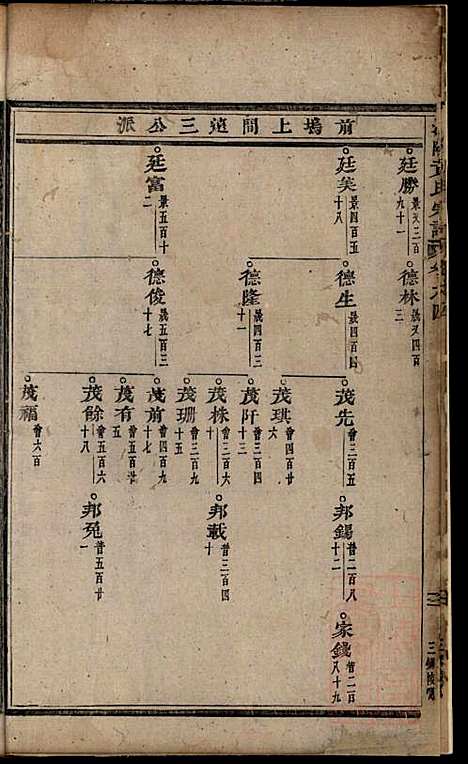 前塢上間廷三公派
廷勝
景又三百九十一
廷芺
景四百五十八
廷富
景五百十二
德林
四百三
德生
四百四
德隆
四百三十一
德俊
五百三十七
茂先
會三百五
茂琪
會四百廿六
茂阡
會四百三十三
茂株
會三百六十
茂珊
會三百九十五
茂前
會四百九十七
茂有
會五百廿五
茂餘
會五百六十八
茂福
會六百
邦錫
昔二百八十二
邦載
昔三百四十
邦冕
昔五百廿一
家錢
二百八十九